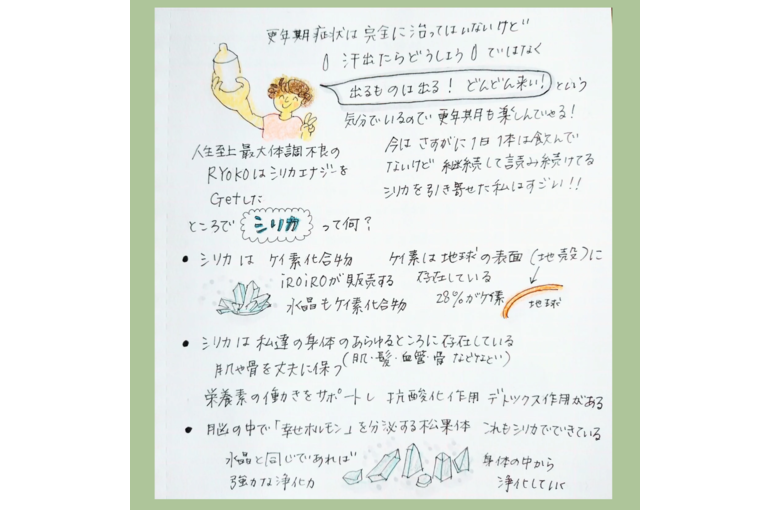 更年期症状は完全に治ってはいないけど
汗出たらどうしよう ではなく
出るものは出る! どんどん来い! という
気分でいるので更年期も楽しんでいせる!
人生至上最大体調不良の
RYOKOはシリカエナジーを
Getした
今はさすがに1日1本は飲んで
ないけど 継続して読み続けてる
シリカを引き寄せた私はすごい!!
ところで シリカ って何?
● シリカは ケイ素化合物
iRoiRoが販売する
水晶もケイ素化合物
ケイ素は地球の表面(地殻)に
存在している
28%がケイ素
地球
● シリカは私達の身体のあらゆるところに存在している
(肌・髪・血管・骨 などなどい)
肌や骨を丈夫に保つ
栄養素の働きをサポートし 抗酸化作用 デトックス作用がある
● 脳の中で「幸せホルモン」を分泌する松果体 これもシリカでできている
水晶と同じであれば
強力な浄化力
身体の中から
浄化していく